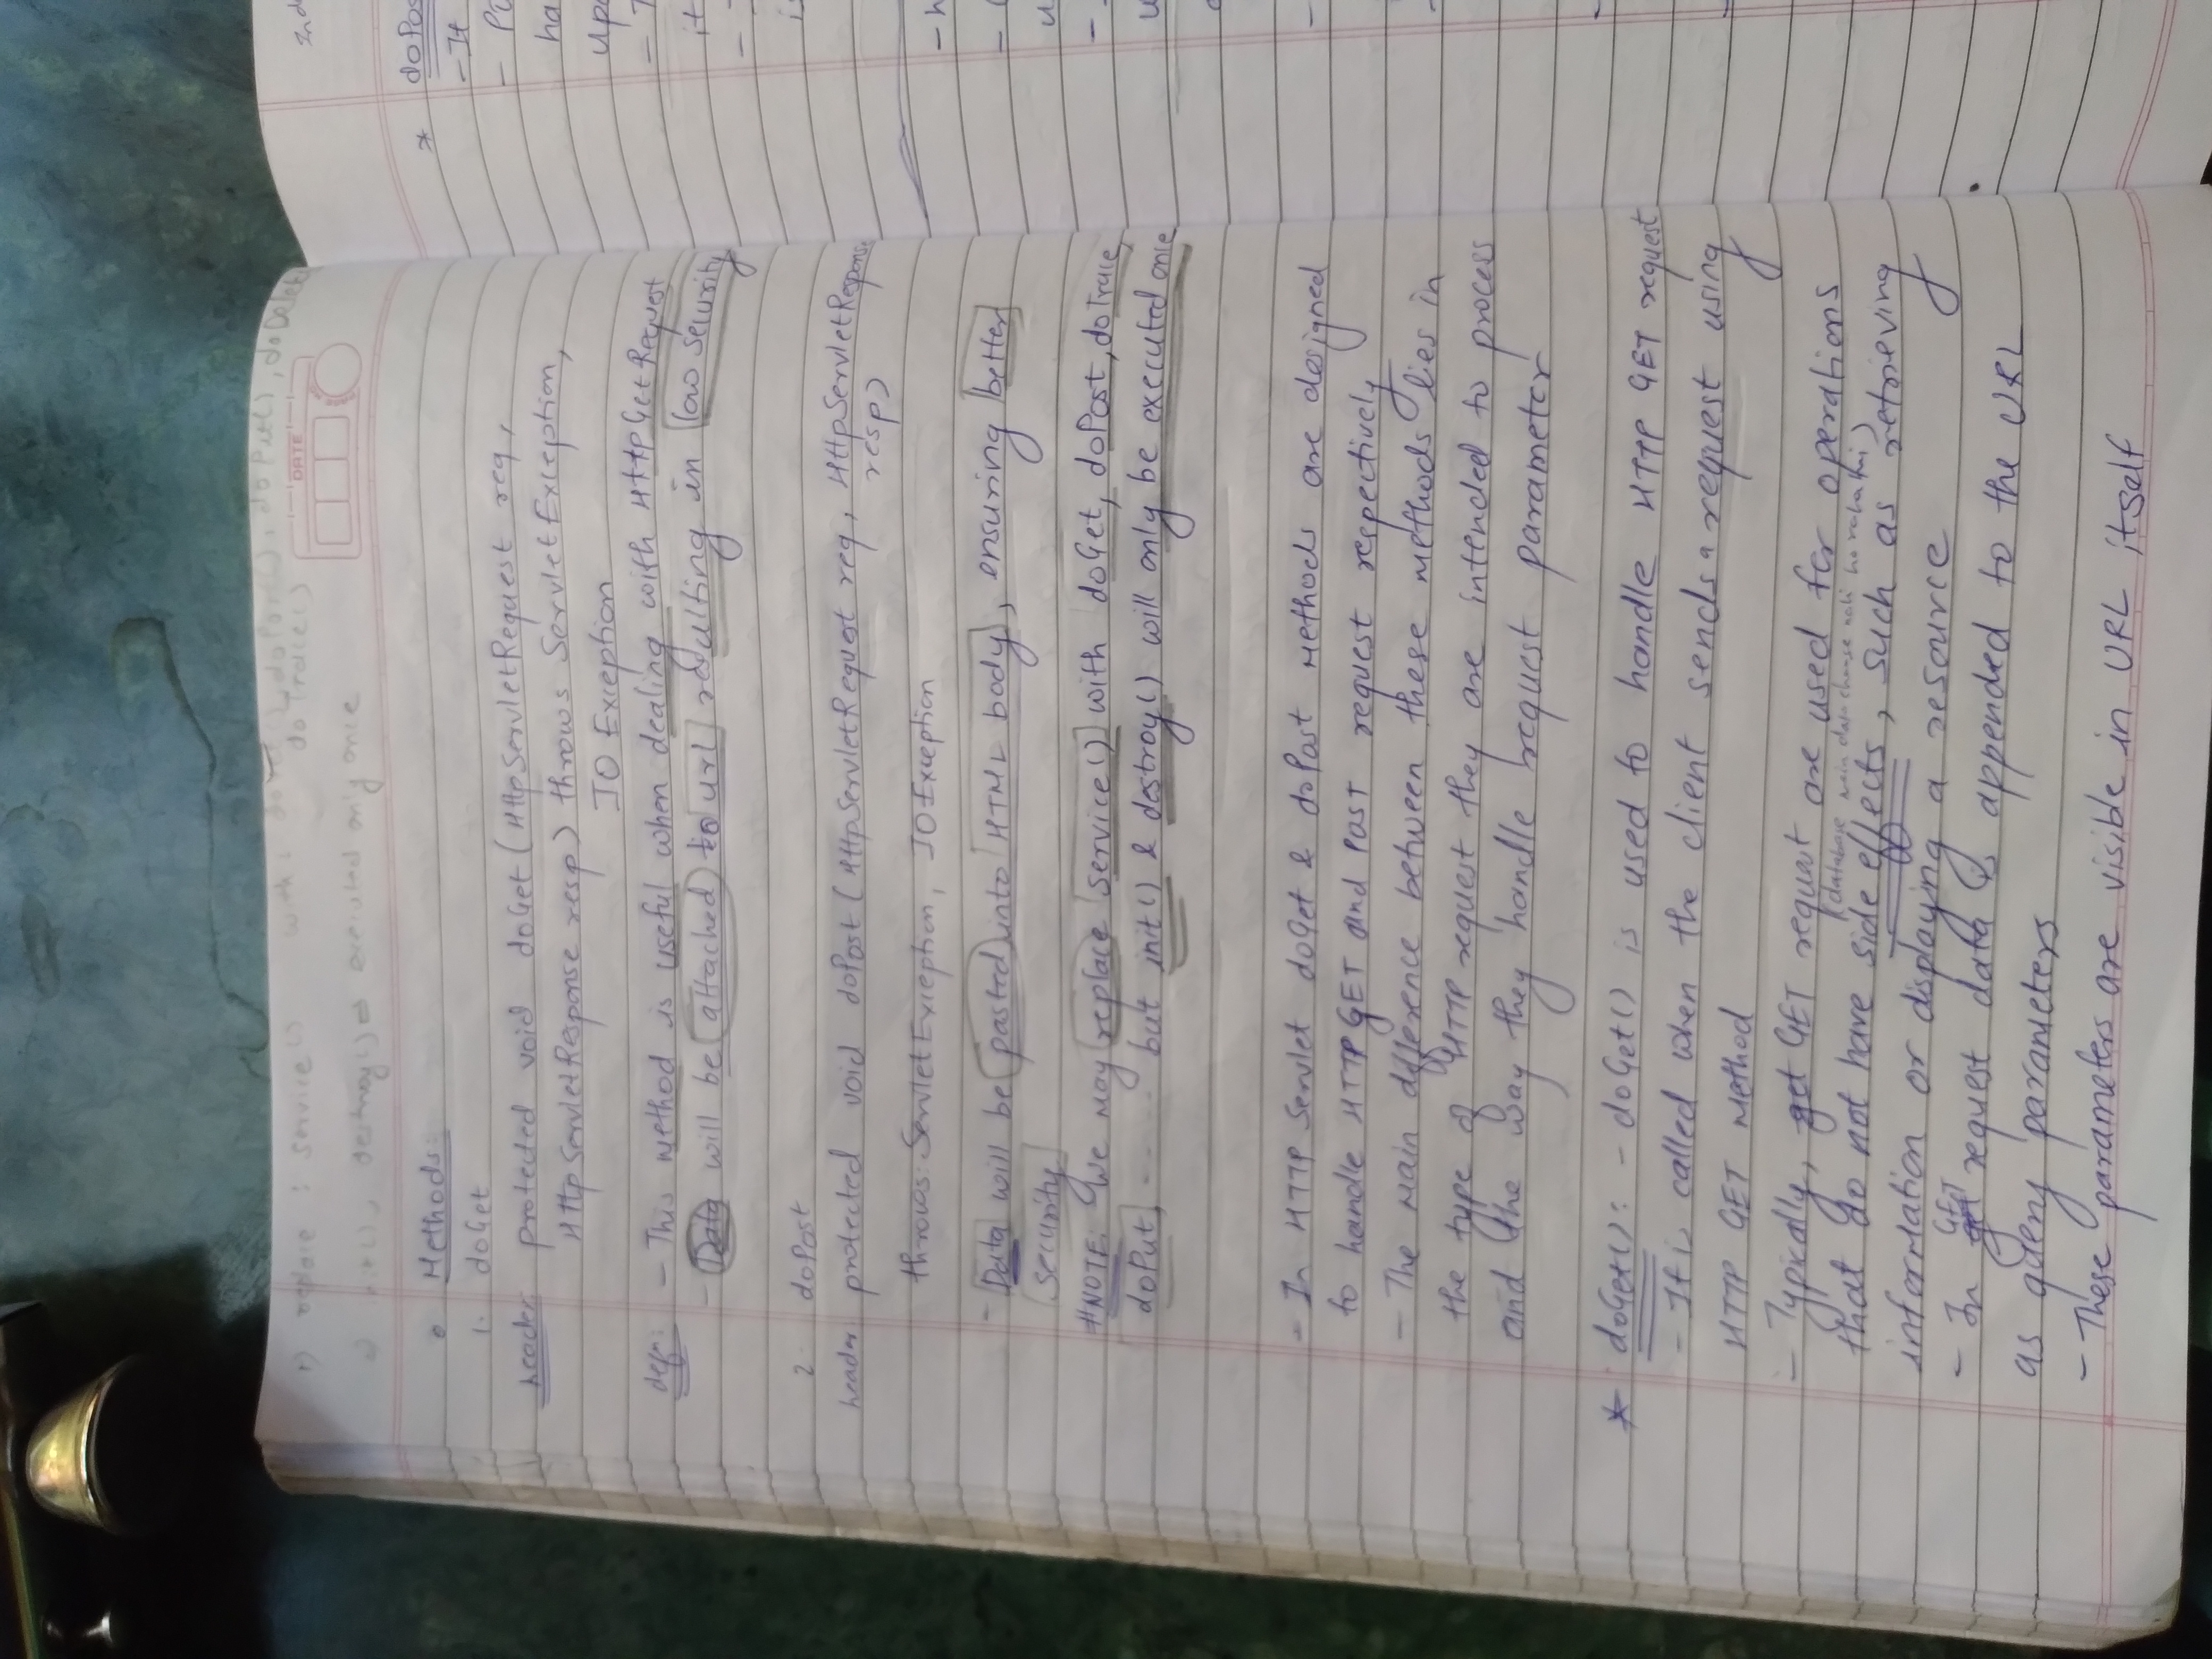 1) replace : service() with : doGet(), doPost(), doPut(), doDelete
doTrace()
DATE
2) init(), destroy() ⇒ executed only once
Methods:
1. doGet
header: protected void doGet (HttpServletRequest req,
HttpServletResponse resp) throws ServletException,
IO Exception
defn: - This method is useful when dealing with HttpGetRequest
- Data will be attached to url resulting in low security
2. doPost
header protected void doPost (HttpServletRequest req, HttpServletResponse
resp)
throws ServletException, IOException
- Data will be pasted into HTML body, ensuring better
security
#NOTE: We may replace service() with doGet, doPost, doTrace,
doPut, ...... but init() & destroy() will only be executed once
- In HTTP Servlet doGet & doPost methods are designed
to handle HTTP GET and POST request respectively
- The main difference between these methods lies in
the type of HTTP request they are intended to process
and the way they handle request parameter
* doGet(): - doGet() is used to handle HTTP GET request
- It is called when the client sends a request using
HTTP GET method
- Typically, get GET request are used for operations
(database main data change nahi ho raha hai)
that do not have side effects, such as retrieving
information or displaying a resource
- In GET request data is appended to the URL
as query parameters
- These parameters are visible in URL itself
* doPos
- It
- Po
ha
upd
it
is